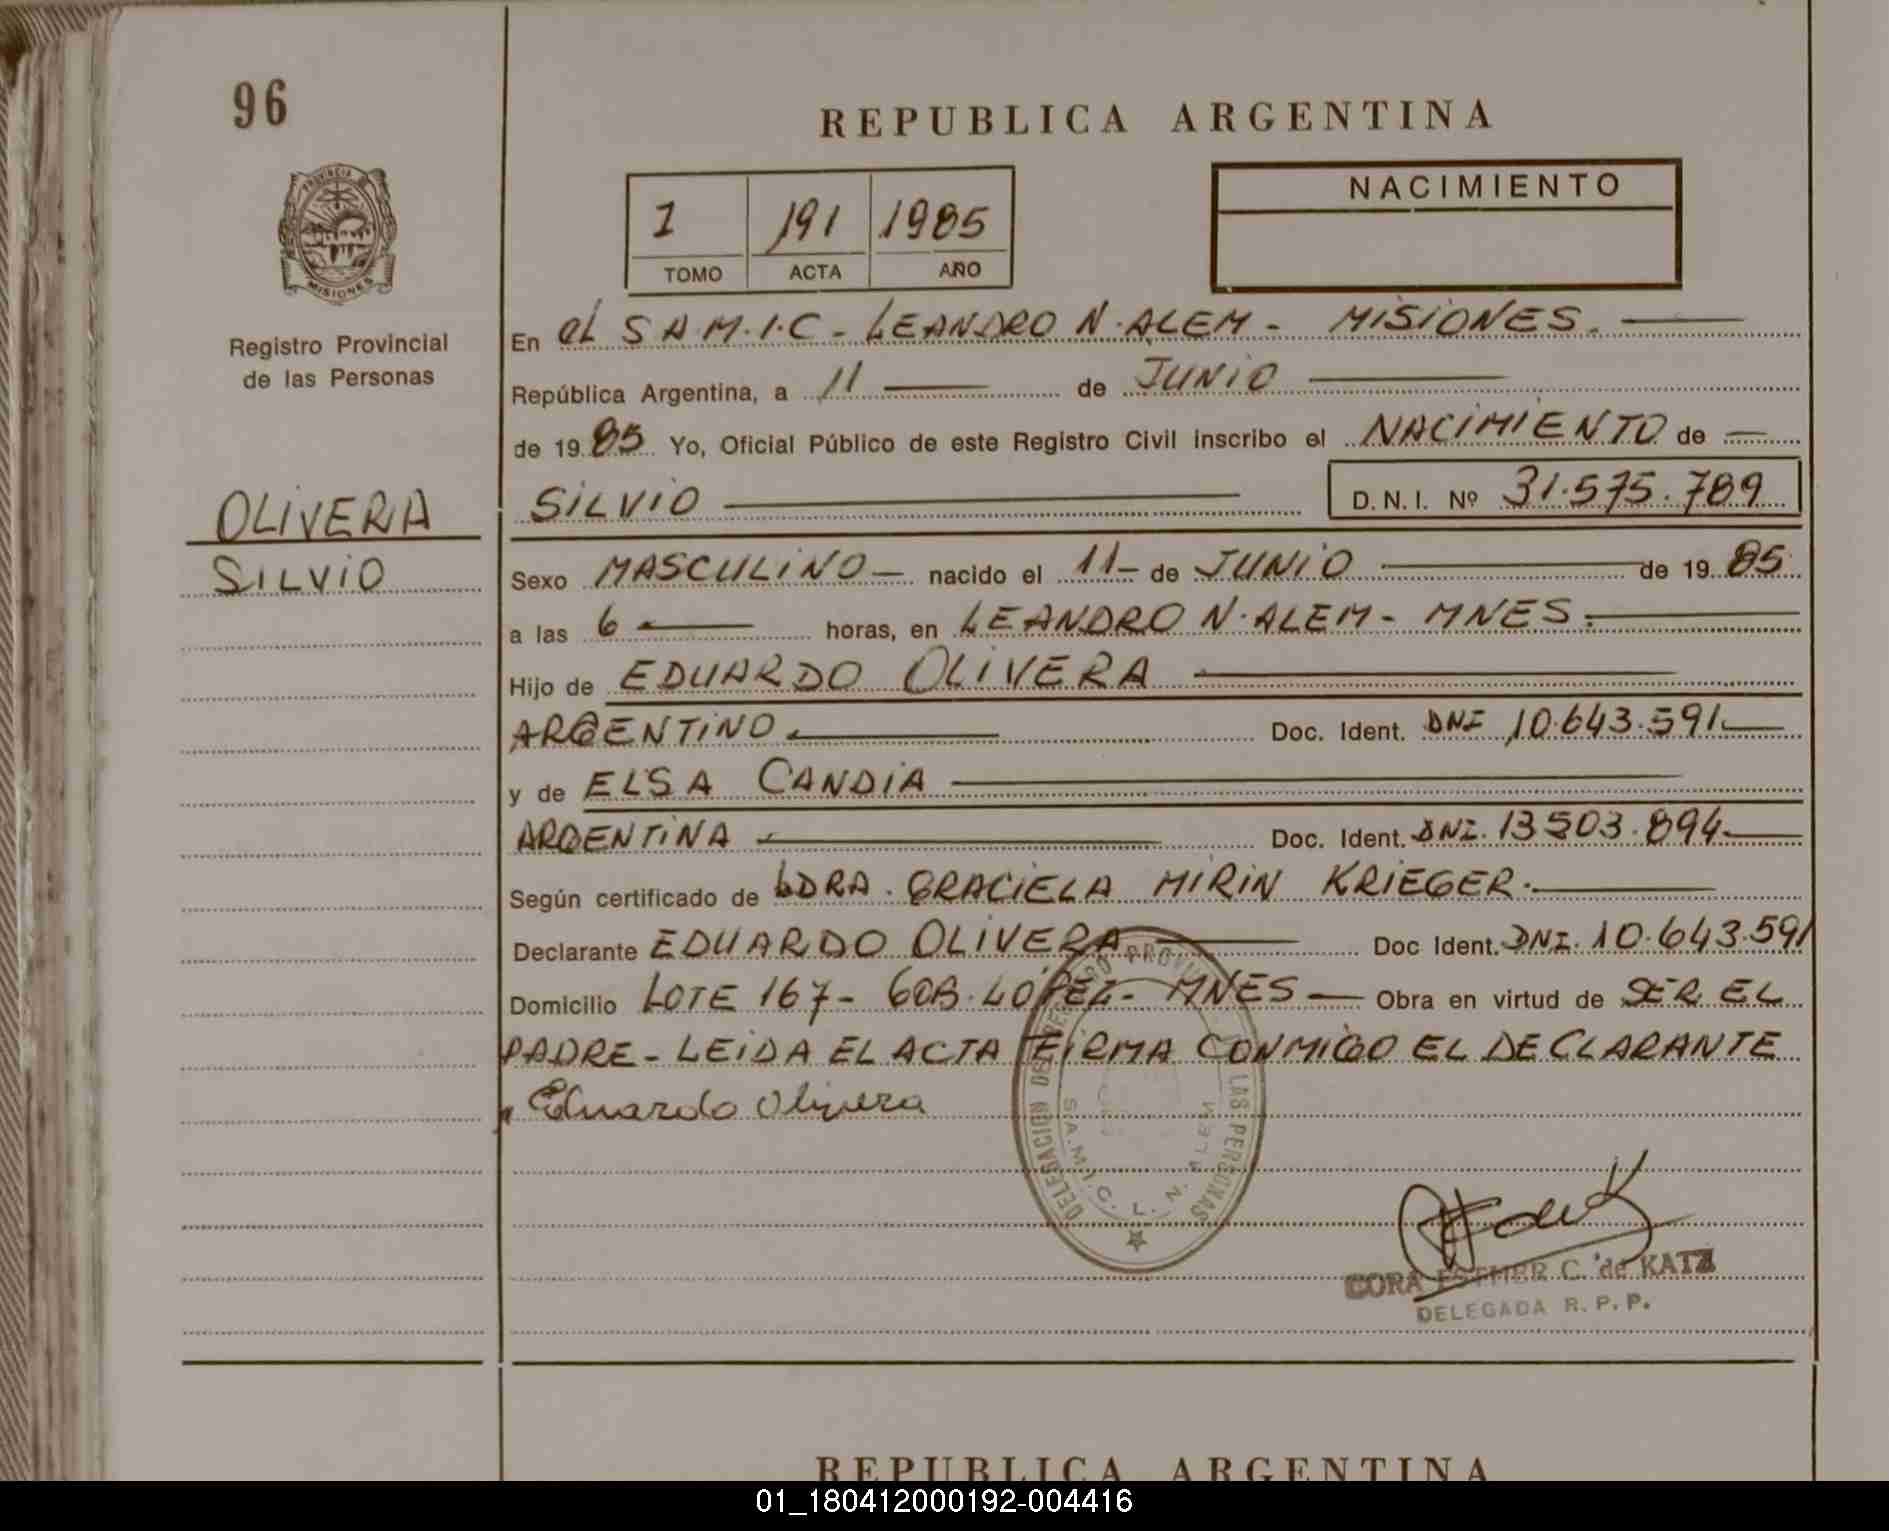 96
REPUBLICA ARGENTINA
PROVINCIA DE
MISIONES
Registro Provincial
de las Personas
I 191 1985
TOMO ACTA AÑO
NACIMIENTO
En el S.A.M.I.C - LEANDRO N. ALEM - MISIONES.
República Argentina, a 11 de JUNIO
de 1985 Yo, Oficial Público de este Registro Civil inscribo el NACIMIENTO de
OLIVERA
SILVIO
SILVIO D.N.I. Nº 31.575.789
Sexo MASCULINO - nacido el 11 - de JUNIO de 1985
a las 6 horas, en LEANDRO N. ALEM - MNES.
Hijo de EDUARDO OLIVERA
ARGENTINO Doc. Ident. DNI 10.643.591
y de ELSA CANDIA
ARGENTINA Doc. Ident. DNI. 13503.894
Según certificado de DRA. GRACIELA MIRIN KRIEGER.
Declarante EDUARDO OLIVERA Doc Ident. DNI. 10.643.591
Domicilio LOTE 167 - GOB. LOPEZ - MNES - Obra en virtud de SER EL
PADRE - LEIDA EL ACTA FIRMA CONMIGO EL DECLARANTE
Eduardo Olivera
DELEGACION DEL REGISTRO PROVINCIAL DE LAS PERSONAS
S.A.M.I.C. L. N. ALEM
CORA ESTHER C. de KATZ
DELEGADA R. P. P.
REPUBLICA ARGENTINA
01_180412000192-004416